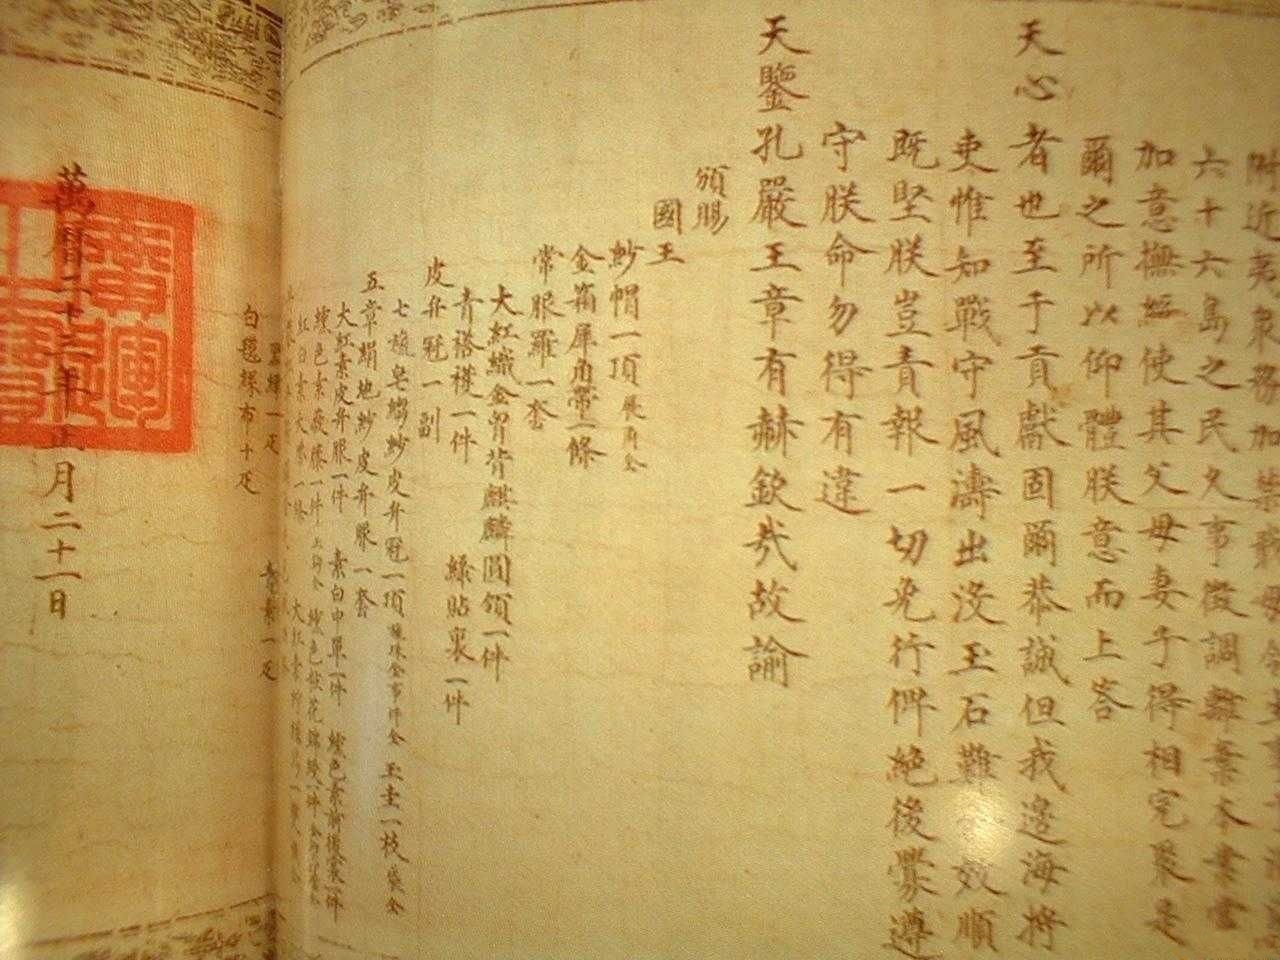 附近夷衆務加禁戢毋令生事于
六十六島之民久事徵調離棄本業當
加意撫綏使其父母妻子得相完聚是
爾之所以仰體朕意而上答
天心者也至于貢獻固爾恭誠但我邊海將
吏惟知戰守風濤出沒玉石難效順
既堅朕豈責報一切免行俾絕後釁遵
守朕命勿得有違
天鑒孔嚴王章有赫欽哉故諭
頒賜
國王
紗帽一頂展角全
金箱犀角帶一條
常服羅一套
大紅織金胷背麒麟圓領一件
青褡𧞤一件 綠貼裏一件
皮弁冠一副
七旒皂縐紗皮弁冠一頂旒珠金事件全 玉圭一枝袋全
五章絹地紗皮弁服一套
大紅素皮弁服一件 素白中單一件 纁色素前後裳一件
纁色素蔽膝一件 纁色妝花錦綬一件
紅白素大帶一條
青素一疋
一疋
白氁絲布十疋
萬曆二十三年正月二十一日